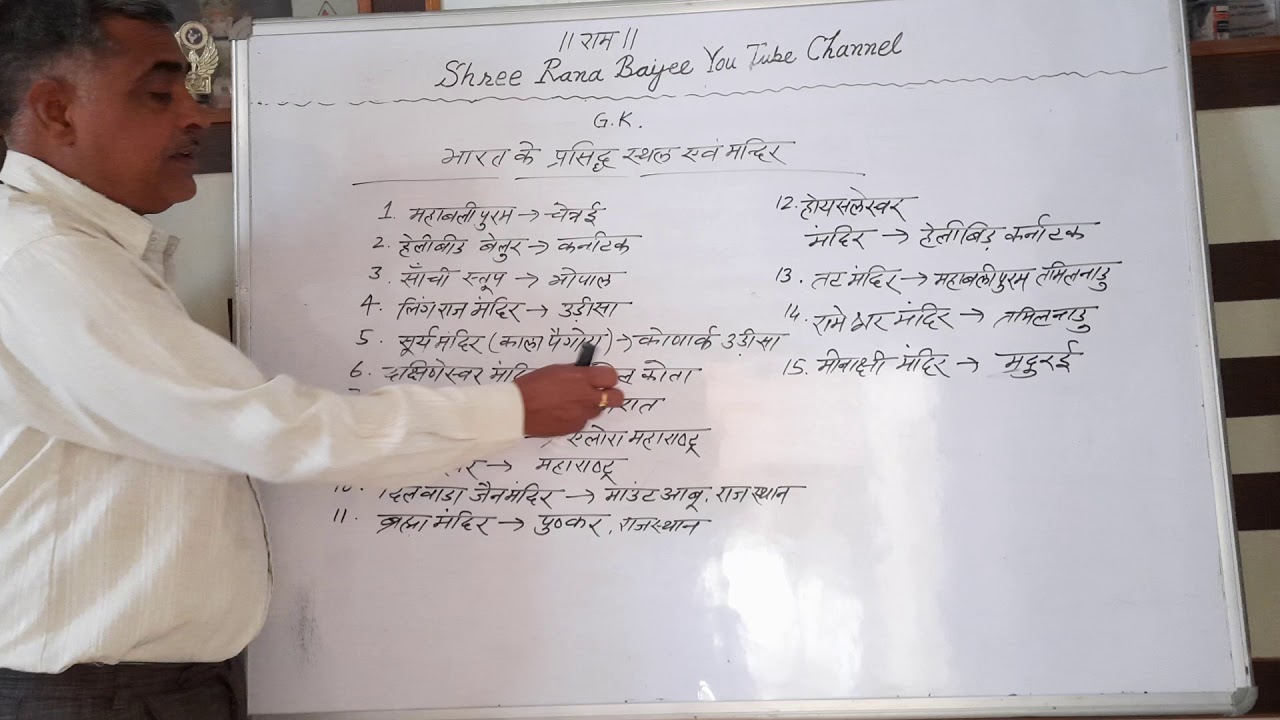 ॥ राम ॥
Shree Rana Bayee You Tube Channel
G.K.
भारत के प्रसिद्ध स्थल एवं मन्दिर
1. महाबलीपुरम → चेन्नई
2. हेलीबीड बेलुर → कर्नाटक
3. साँची स्तूप → भोपाल
4. लिंगराज मंदिर → उड़ीसा
5. सूर्य मंदिर (काला पैगोडा) → कोणार्क उड़ीसा
6. दक्षिणेस्वर कोता
→ एलोरा महाराष्ट्र
→ महाराष्ट्र
10. दिलवाडा जैन मंदिर → माउंट आबू, राजस्थान
11. ब्रह्मा मंदिर → पुष्कर, राजस्थान
12. होयसलेस्वर
मंदिर → हेलीबिड कर्नाटक
13. तट मंदिर → महाबलीपुरम तमिलनाडु
14. रामेश्वर मंदिर → तमिलनाडु
15. मीनाक्षी मंदिर → मदुरई